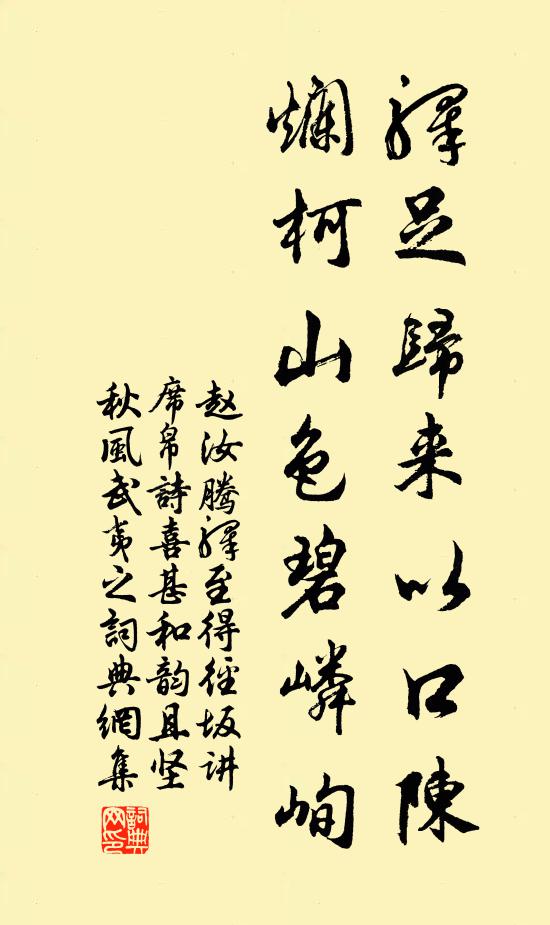 驛足歸来以口陳
爛柯山色碧嶙峋
赵汝騰驛至得徑坂讲
席帛詩喜甚和韵且坚
秋風武夷之詞典網集